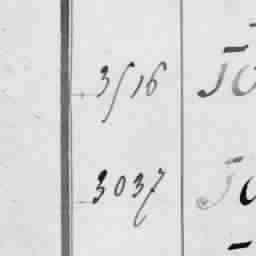 3516 Jo
3037 Jo